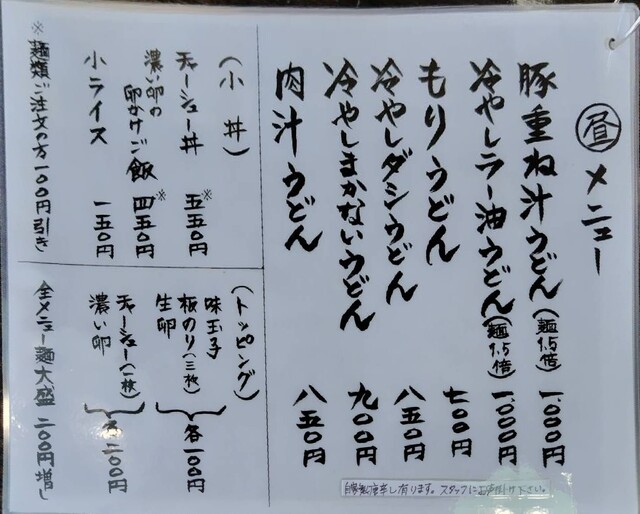 昼メニュー
豚重ね汁うどん(麺1.5倍) 1,000円
冷やしラー油うどん(麺1.5倍) 1,000円
もりうどん 七〇〇円
冷やしダシうどん 八五〇円
冷やしまかないうどん 九〇〇円
肉汁うどん 八五〇円
(小丼)
チャーシュー丼 ※五五〇円
濃い卵の
卵かけご飯 ※四五〇円
小ライス 一五〇円
※麺類ご注文の方一〇〇円引き
(トッピング)
味玉子
板のり(三枚)
生卵
各一〇〇円
チャーシュー(一枚)
濃い卵
各二〇〇円
全メニュー麺大盛二〇〇円増し
自家製唐辛し有ります。スタッフにお声掛け下さい。